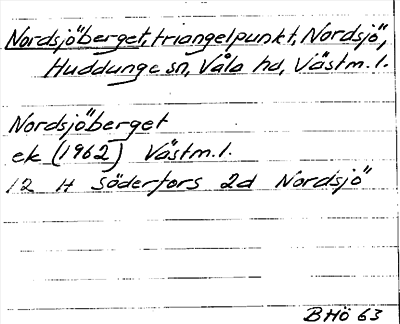 Nordsjöberget, triangelpunkt, Nordsjö,
Huddunge sn, Våla hd, Västm. l.
Nordsjöberget
ek (1962) Västm. l.
12 H Söderfors 2d Nordsjö
BHö 63